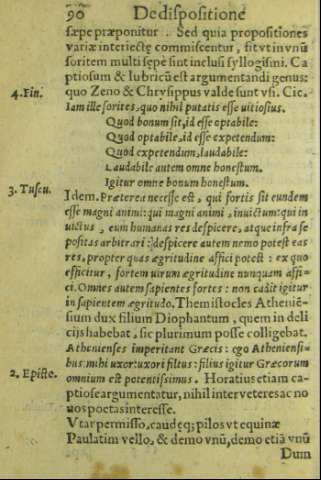 90 De dispositione
sæpe præponitur. Sed quia propositiones
variæ interiectę commiscentur, fit vt in vnũ
soritem multi sępè sint inclusi syllogismi. Ca
ptiosum & lubricũ est argumentandi genus:
4. Fin. quo Zeno & Chrysippus valde sunt vsi. Cic.
Iam ille sorites, quo nihil putatis esse vitiosius.
Quod bonum sit, id esse optabile:
Quod optabile, id esse expetendum:
Quod expetendum, laudabile:
Laudabile autem omne honestum.
Igitur omne bonum honestum.
3. Tuscu. Idem. Præterea necesse est, qui fortis sit eundem
esse magni animi: qui magni animi, inuictum: qui in
uictus, eum humanas res despicere, atque infra se
positas arbitrari: despicere autem nemo potest eas
res, propter quas ægritudine affici potest: ex quo
efficitur, fortem uirum ægritudine nunquam affi-
ci. Omnes autem sapientes fortes: non cadit igitur
in sapientem ægritudo. Themistocles Atheniẽ-
sium dux filium Diophantum, quem in deli
cijs habebat, sic plurimum posse colligebat.
Athenienses imperitant Græcis: ego Atheniensi-
bus: mihi uxor: uxori filius: filius igitur Græcorum
2. Epistę. omnium est potentissimus. Horatius etiam ca-
ptiose argumentatur, nihil inter veteres ac no
uos poetas interesse.
Vtar permisso, caudęq; pilos vt equinæ
Paulatim vello, & demo vnũ, demo etiã vnũ
Dum